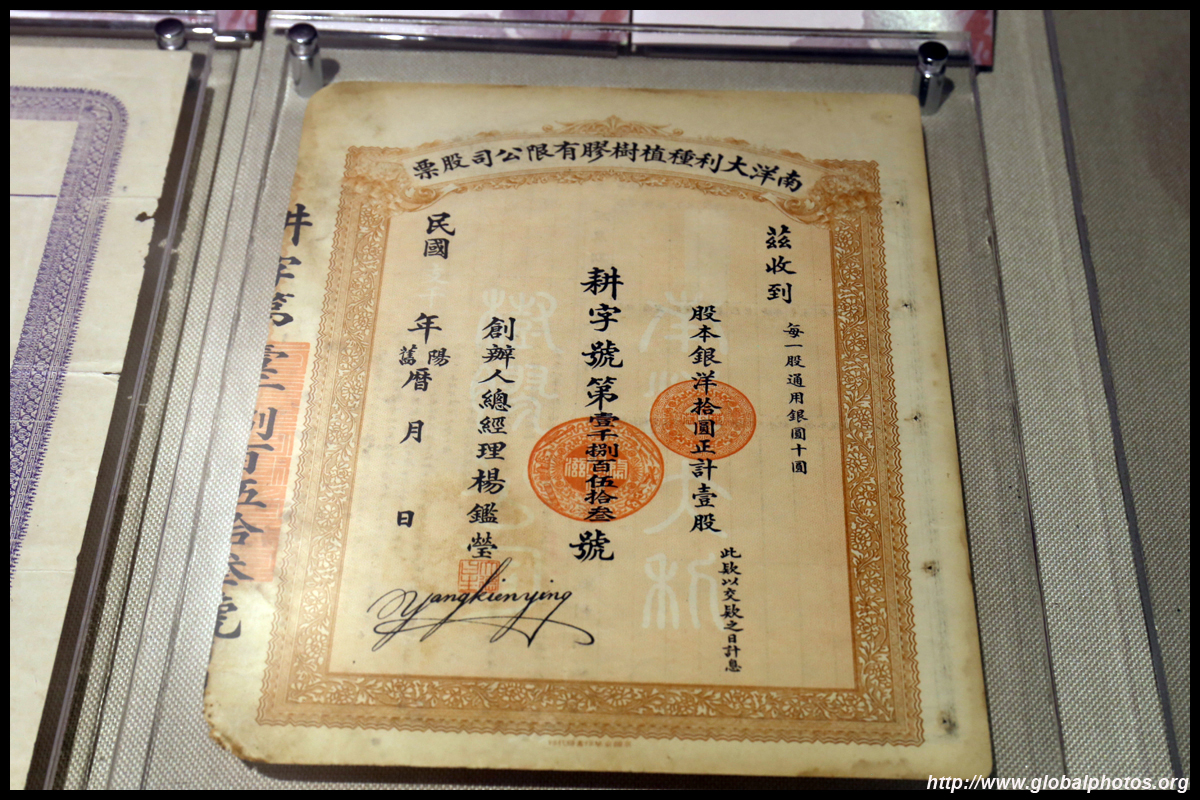 南洋大利種植樹膠有限公司股票
茲收到
每一股通用銀圓十圓
股本銀洋拾圓正計壹股
此欵以交欵之日計息
耕字號第壹千捌百伍拾叁號
創辦人總經理楊鑑瑩
Yangkienying
民國
年
陽
舊
曆
月
日
耕字第壹千捌百伍拾叁號
http://www.globalphotos.org